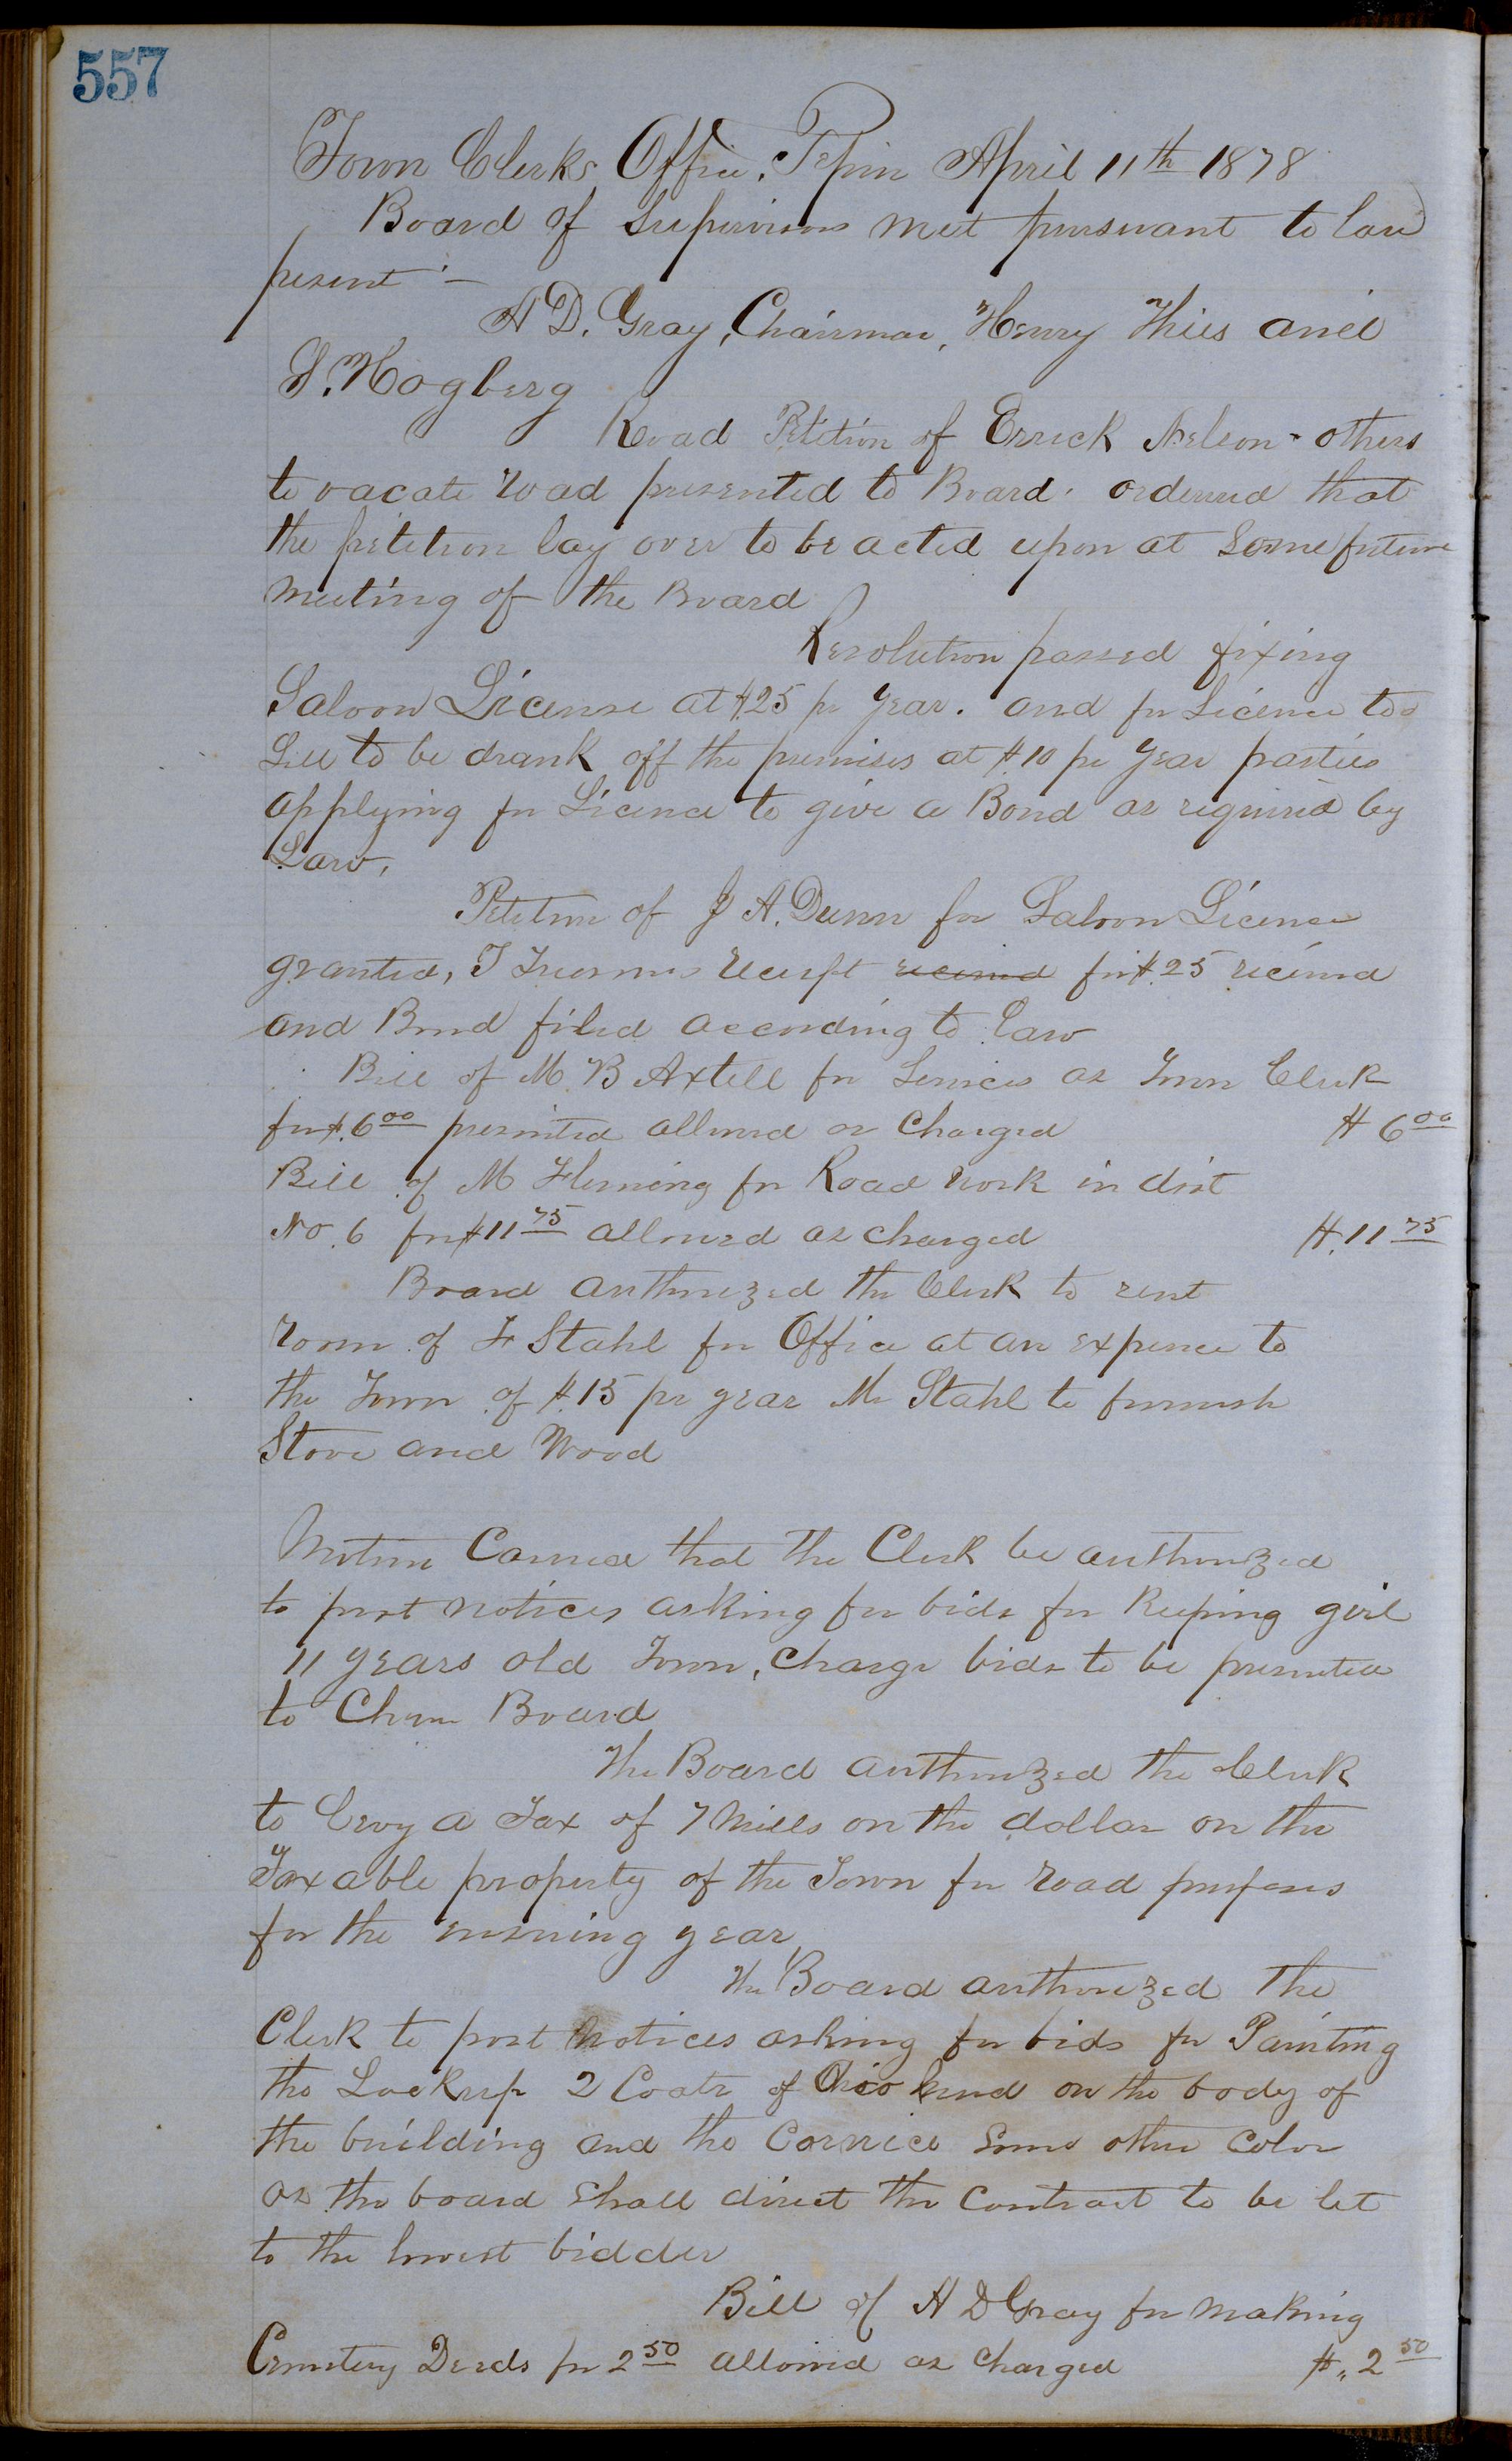 557
Town Clerks Office, Pepin April 11th 1878
Board of Supervisors met pursuant to law
present :-
A D. Gray, Chairman, Henry Thies and
S. Hogberg
Road Petition of Errick Nelson - others
to vacate road presented to Board. ordered that
the petition lay over to be acted upon at some future
meeting of the Board
Resolution passed fixing
Saloon License at $25 pr year. and for Licence to
Sell to be drank off the premises at $10 pr year parties
applying for Licence to give a Bond as required by
Law,
Petition of J A. Dunn for Saloon Licence
granted, T Treasurers receipt received for $.25 received
and Bond filed according to law
Bill of M B Axtell for Services as Town Clerk
for $.6 00 presented allowed as Charged $ 6 00
Bill of M Fleming for Road work in dist
No. 6 for $11 75 allowed as charged $.11 75
Board authorized the Clerk to rent
room of F Stahl for Office at an expence to
the Town of $.15 pr year Mr Stahl to furnish
Stove and Wood
Motion Carried that the Clerk be authorized
to post notices asking for bids for Keeping girl
11 years old Town, charge bids to be presented
to Chrm Board
The Board authorized the Clerk
to Levy a Tax of 7 Mills on the dollar on the
Taxable property of the Town for road purposes
for the ensuing year
The Board authorized the
Clerk to post notices asking for bids for Painting
the Lockup 2 Coats of on the body of
the building and the Cornice Some other Color
as the board Shall direct the Contract to be let
to the lowest bidder
Bill of A D Gray for making
Cemetery Deeds for 2 50 allowed as Charged $.. 2 50